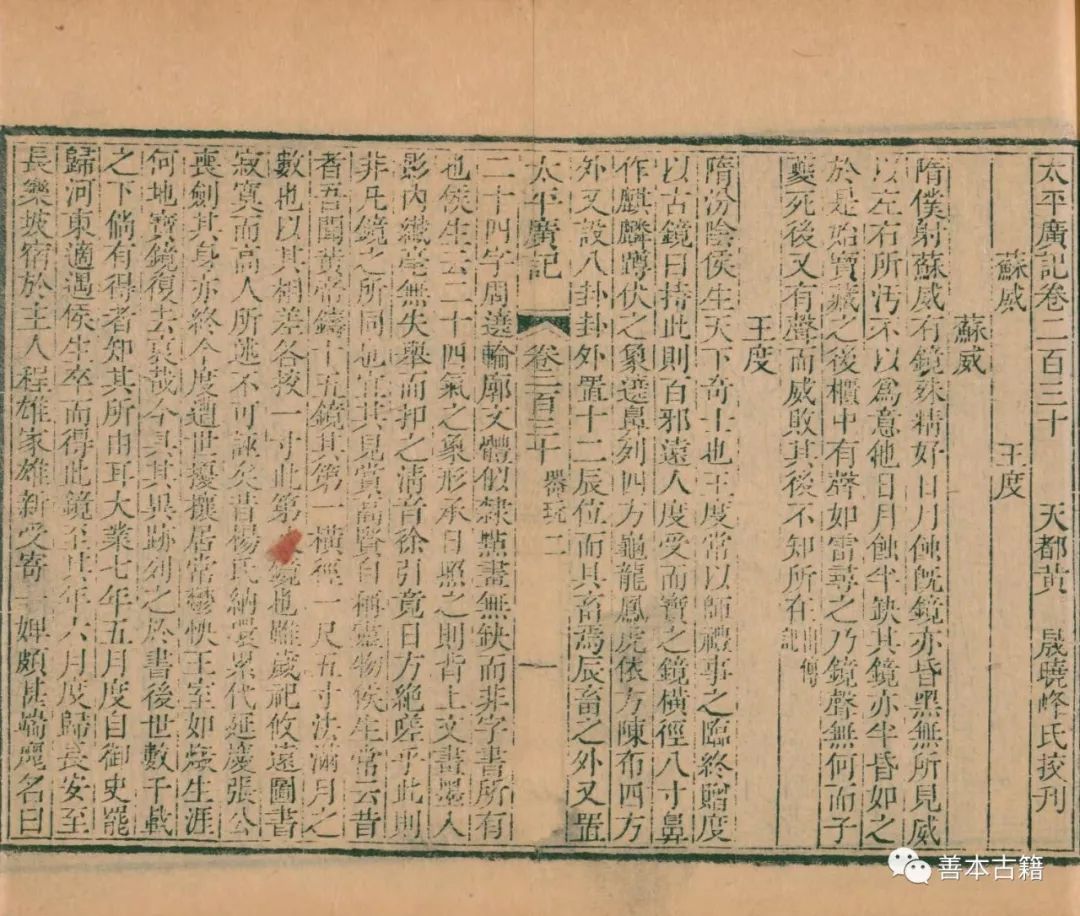 太平廣記卷二百三十　天都黃　晟曉峰氏挍刊
蘇威　王度
蘇威
隋僕射蘇威有鏡殊精好日月蝕既鏡亦昏黑無所見威
以左右所汚不以爲意他日月蝕半缺其鏡亦半昏如之
於是始寶藏之後櫃中有聲如雷尋之乃鏡聲無何而子
夔死後又有聲而威敗其後不知所在出傳記
王度
隋汾陰侯生天下奇士也王度常以師禮事之臨終贈度
以古鏡曰持此則百邪遠人度受而寶之鏡橫徑八寸鼻
作麒麟蹲伏之象遶鼻列四方龜龍鳳虎依方陳布四方
外又設八卦卦外置十二辰位而具畜焉辰畜之外又置
太平廣記　卷二百三十　器玩二　一
二十四字周遶輪廓文體似隸點畫無缺而非字書所有
也侯生云二十四氣之象形承日照之則背上文畫墨入
影內纖毫無失舉而扣之清音徐引竟日方絕嗟乎此則
非凡鏡之所同也宜其見賞高賢自稱靈物侯生常云昔
者吾聞黃帝鑄十五鏡其第一橫徑一尺五寸法滿月之
數也以其相差各挍一寸此第鏡也雖歲祀攸遠圖書
寂寞而高人所述不可誣矣昔楊氏納環累代延慶張公
喪劍其身亦終今度遭世擾攘居常鬱怏王室如燬生涯
何地寶鏡復去哀哉今具其異跡列之於書後世數千載
之下倘有得者知其所由耳大業七年五月度自御史罷
歸河東適遇侯生卒而得此鏡至其年六月度歸長安至
長樂坡宿於主人程雄家雄新受寄一婢頗甚端麗名曰
善本古籍